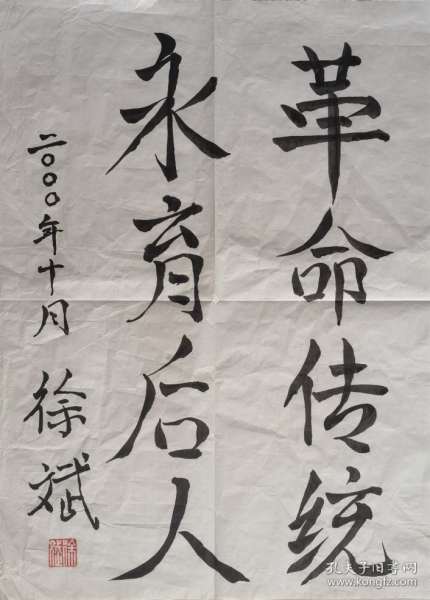 革命传统
永育后人
二〇〇〇年十月
徐斌
孔夫子旧书网
www.kongfz.com